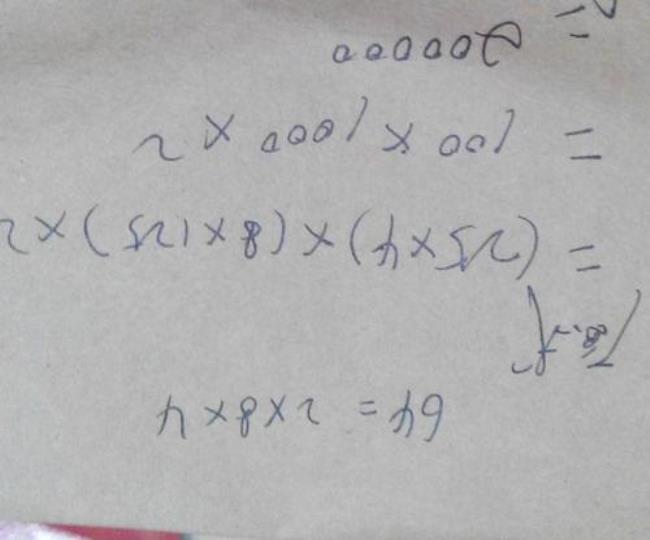 64=2×8×4
=(25×4)×(8×125)×2
=100×1000×2
=200000